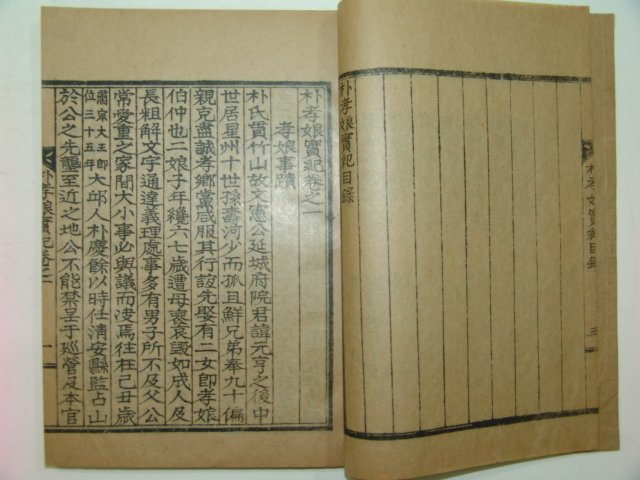 朴孝娘實紀目錄
朴孝娘實紀目錄
三
朴孝娘實紀卷之一
孝娘事蹟
朴氏貫竹山故文憲公延城府院君諱元亨之後中
世居星州十世孫壽河少而孤且鮮兄弟奉九十偏
親克盡誠孝鄉黨咸服其行誼先娶有二女卽孝娘
伯仲也二娘子年纔六七歲遭母喪哀毁如成人及
長粗解文字通達義理處事多有男子所不及父公
常愛重之家間大小事必與議而決焉往在己丑歲
肅宗大王卽
位三十五年
大邱人朴慶餘以時任淸安縣監占山
於公之先壟至近之地公不能禁呈于巡營及本官
朴孝娘實紀卷之一
一